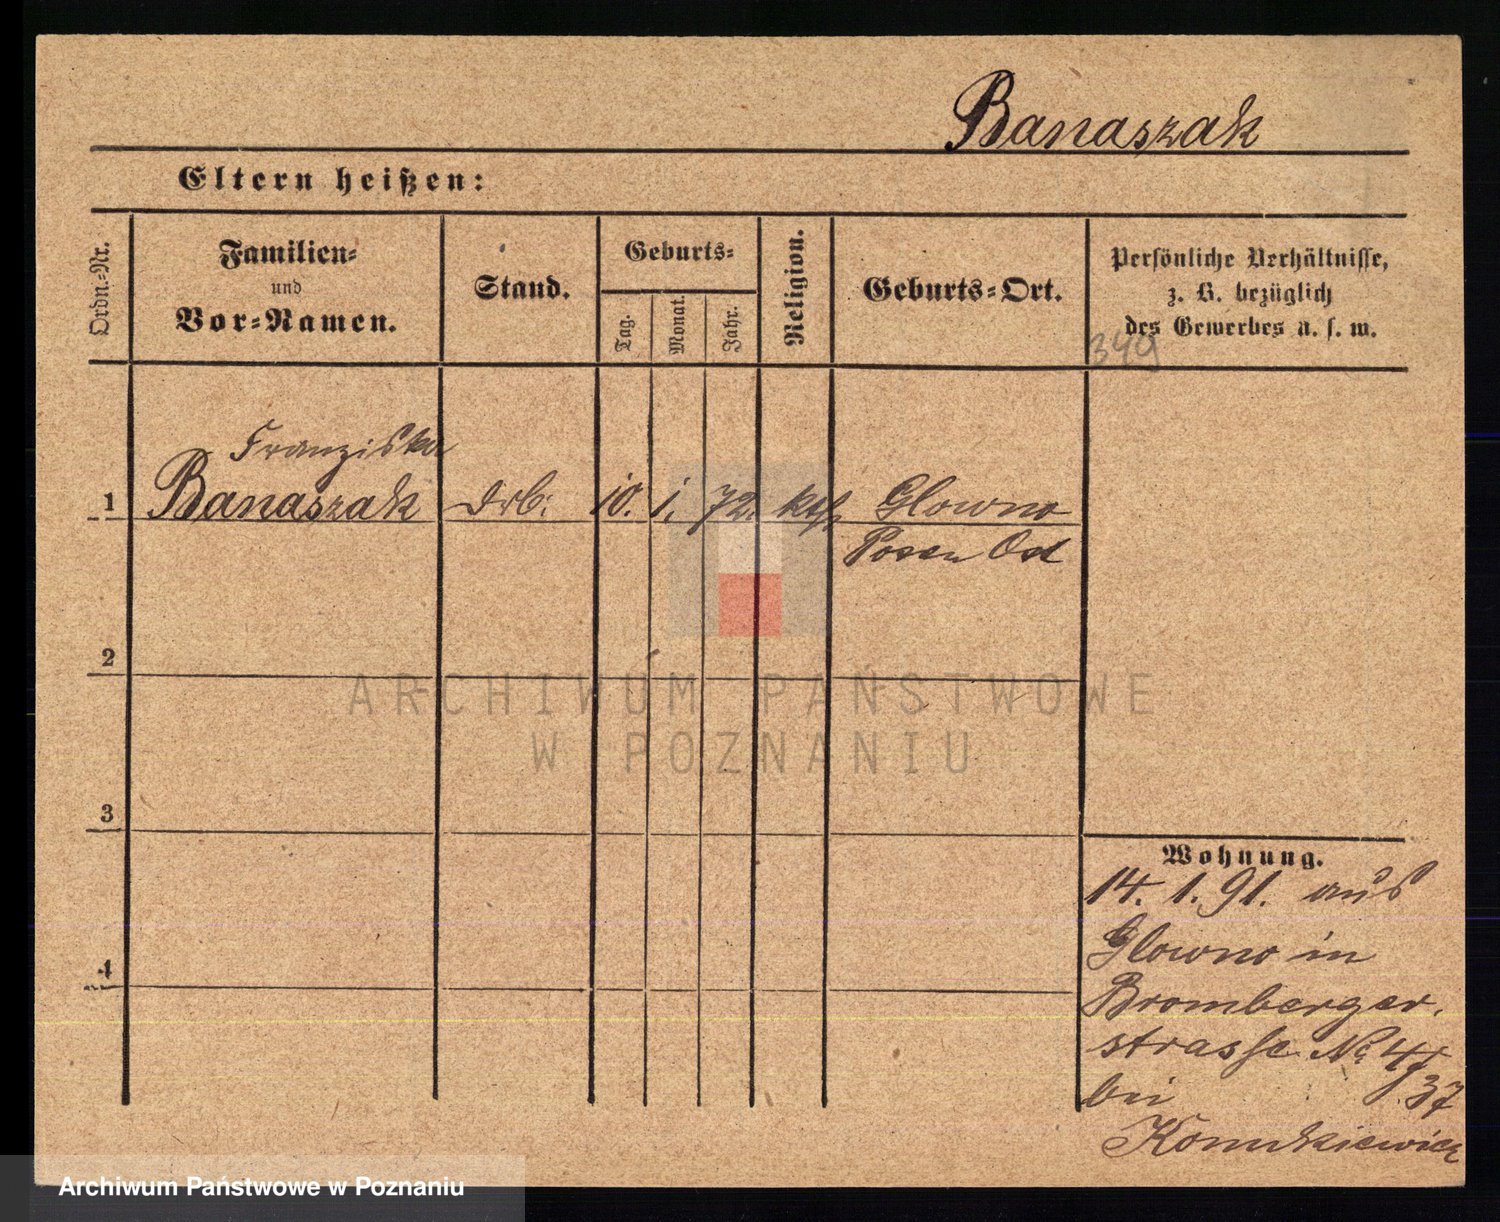 Banaszak
Eltern heißen:
Ordn.-Nr.
Familien-
und
Vor-Namen.
Stand.
Geburts-
Tag.
Monat.
Jahr.
Religion.
Geburts-Ort.
Persönliche Verhältnisse,
z. B. bezüglich
des Gewerbes u. s. w.
349
Franziska
1 Banaszak 10. 1. 72. kth Glowno
Posen Ost
2
3
4
Wohnung.
14. 1. 91. aus
Glowno in
Bromberger
strasse No
bei 37
ARCHIWUM PAŃSTWOWE
W POZNANIU
Archiwum Państwowe w Poznaniu